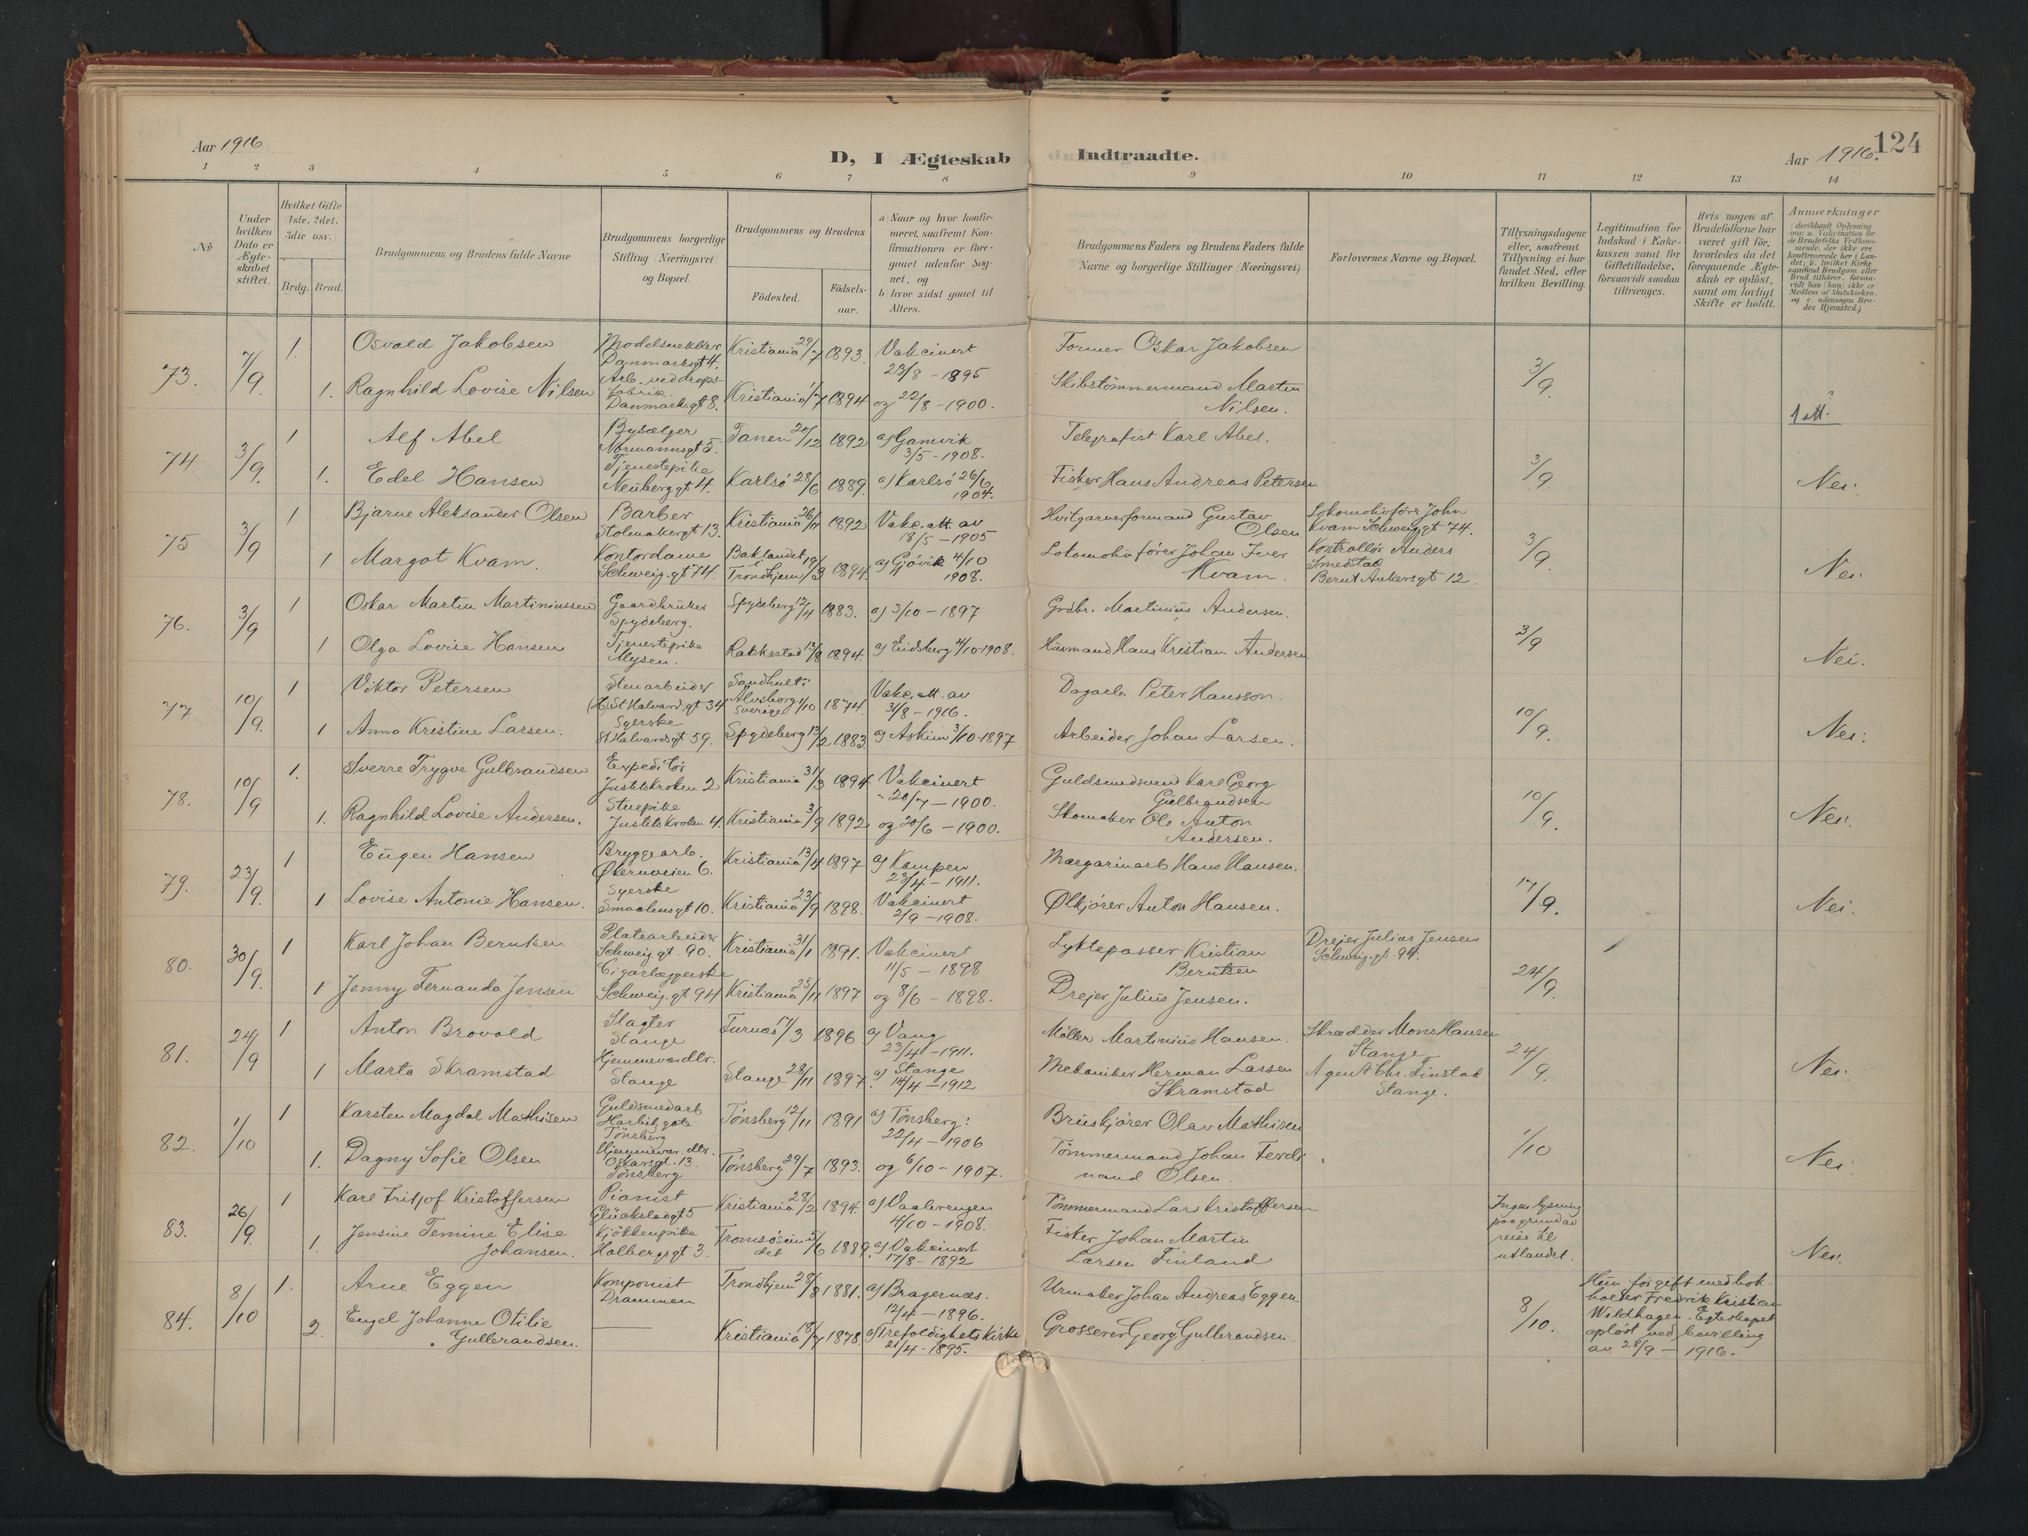 Aar 1916
D, I Ægteskab Indtraadte.
Aar 1916.
124
1 2 3 4 5 6 7 8 9 10 11 12 13 14
No
Under hvilken Dato er Ægteskabet stiftet.
Hvilket Gifte 1ste, 2det, 3die osv.
Brdg. Brud.
Brudgommens og Brudens fulde Navne
Brudgommens borgerlige Stilling (Næringsvei) og Bopæl.
Brudgommens og Brudens
Fødested.
Fødselsaar.
a) Naar og hvor konfirmeret, saafremt Konfirmationen er foregaaet udenfor Sognet, og
b) hvor sidst gaaet til Alters.
Brudgommens Faders og Brudens Faders fulde Navne og borgerlige Stillinger (Næringsvei)
Forlovernes Navne og Bopæl.
Tillysningsdagene eller, saafremt Tillysning ei har fundet Sted, efter hvilken Bevilling.
Legitimation for Indskud i Enkekassen samt for Giftetilladelse, forsaavidt saadan tiltrænges.
Hvis nogen af Brudefolkene har været gift før, hvorledes da det foregaaende Ægteskab er opløst, samt om lovligt Skifte er holdt.
Anmerkninger
73. 7/9 1. Osvald Jakobsen Modelsnekker Danmarksgt 4. Kristiania 29/7 1893. Vakcinert 23/8 - 1895 Former Oskar Jakobsen 3/9
1. Ragnhild Lovise Nilsen Arb. ved dropsfabrik. Danmarksgt 8. Kristiania 1/7 1894 og 22/8 - 1900. Skibstømmermand Martin Nilsen. 1 att.
74. 3/9 1 Alf Abel Bysælger Normannsgt 5. Tanen 20/12 1892 a) Gamvik 3/5 - 1908. Telegrafist Karl Abel. 3/9
1. Edel Hansen Tjenestepike Neuberggt 4. Karlsö 28/6 1889. a) Karlsö 26/6 1904. Fisker Hans Andreas Petersen Nei.
75 3/9 1 Bjarne Aleksander Olsen Barber Stolmakergt 13. Kristiania 1892 Vakc. att. av 18/5 - 1905 Hvitgarverformand Gustav Olsen Lokomotivfører John Kvam Schweiggt 74. 3/9
1 Margot Kvam. Kontordame Schweig.gt 74. Baklandet Trondhjem 19/3 1894 a) Gjøvik 4/10 1908. Lokomotivfører Johan Iver Kvam Kontrollør Anders Smedstad Bernt Ankersgt 12. Nei.
76. 3/9 1 Oskar Martin Martiniussen Gaardbruker Spydeberg. Spydeberg 12/4 1883. a) 3/10 - 1897 Grdbr. Martinius Andersen. 3/9
1 Olga Lovise Hansen Tjenestepike Mysen. Rakkestad 13/8 1894. a) Eidsberg 4/10 1908. Husmand Hans Kristian Andersen Nei.
77 10/9. 1 Viktor Petersen Stenarbeider St Halvardsgt 34 Sandhult i Älvsborg Sverige 1/10 1874. Vakc. att. av 31/8 - 1916. Peter Hansson. 10/9.
1 Anna Kristine Larsen. Syerske St Halvardsgt 59. Spydeberg 13/2 1883. a) Askim 3/10 - 1897 Arbeider Johan Larsen. Nei.
78. 10/9 1. Sverre Trygve Gulbrandsen Expeditør Justitskroken 2 Kristiania 31/3 1894 Vakcinert 20/7 - 1900. Guldsmedsvend Karl Georg Gulbrandsen 10/9.
1. Ragnhild Lovise Andersen. Stuepike Justitskroken 4 Kristiania 3/9 1892 og 20/6 - 1900. Skomaker Ole Anton Andersen. Nei.
79. 23/9. 1 Eugen Hansen Bryggearb. Økernveien 6. Kristiania 13/4 1897 a) Kampen 23/4 - 1911. Margarinarb Hans Hansen. 17/9.
1 Lovise Antonie Hansen. Syerske Smaalensgt 10. Kristiania 23/9 1898. Vakcinert 2/9 - 1908. Ølkjører Anton Hansen. Nei.
80. 30/9. 1 Karl Johan Berntsen Platearbeider Schweig.gt. 90. Kristiania 31/1 1891. Vakcinert 11/5 - 1898 Lyktepasser Kristian Berntsen Drejer Julius Jensen Schweig.gt. 94. 24/9.
1 Jenny Fernanda Jensen Cigarlæggerske Schweig.gt 94 Kristiania 25/11 1897 og 8/6 - 1898. Drejer Julius Jensen.
81. 24/9 1 Anton Brovold Slagter Stange Furnæs 17/3 1896 a) Vang 23/4 - 1911. Møller Martinius Hansen. Skrædder Mons Hansen Stange 24/9.
1 Marta Skramstad Hjemmeværdlr. Stange Stange 28/11 1897. a) Stange 14/4 - 1912 Mekaniker Herman Larsen Skramstad Agent Chr. Finstad Stange. Nei.
82. 1/10 1 Karsten Magdal Mathisen Guldsmedarb Tønsberg Tønsberg 12/11 1891 a) Tønsberg: 22/4 - 1906 Bruskjører Olav Mathisen 1/10
1. Dagny Sofie Olsen Hjemmevær. dtr. Oskarsgt. 13. Tønsberg Tønsberg 29/7 1893. og 6/10 - 1907. Tømmermand Johan Ferdinand Olsen. Nei.
83. 26/9. 1 Karl Fritjof Kristoffersen Pianist Glückstadgt 5 Kristiania 28/2 1894. a) Vaalerengen 4/10 - 1908. Tømmermand Lars Kristoffersen Ingen lysning paa grund av reise til utlandet.
1. Jensine Temine Elise Johansen. Kjøkkenpike Holbergsgt 3. Tromsøsundet 1889. a) Vakcinert 17/8 - 1892 Fisker Johan Martin Larsen Finland Nei.
84. 8/10 1. Arne Eggen Komponist Drammen Trondhjem 28/8 1881. a) Bragernæs. 12/4 - 1896. Urmaker Johan Andreas Eggen. 8/10. Hun før gift med bokholder Fredrik Kristian Wildhagen. Egteskapet opløst ved bevilling av 28/9 - 1916.
2. Engel Johanne Otilie Gulbrandsen. Kristiania 18/7 1878. a) Trefoldighets Kirke 21/4 - 1895. Grosserer Georg Gulbrandsen.